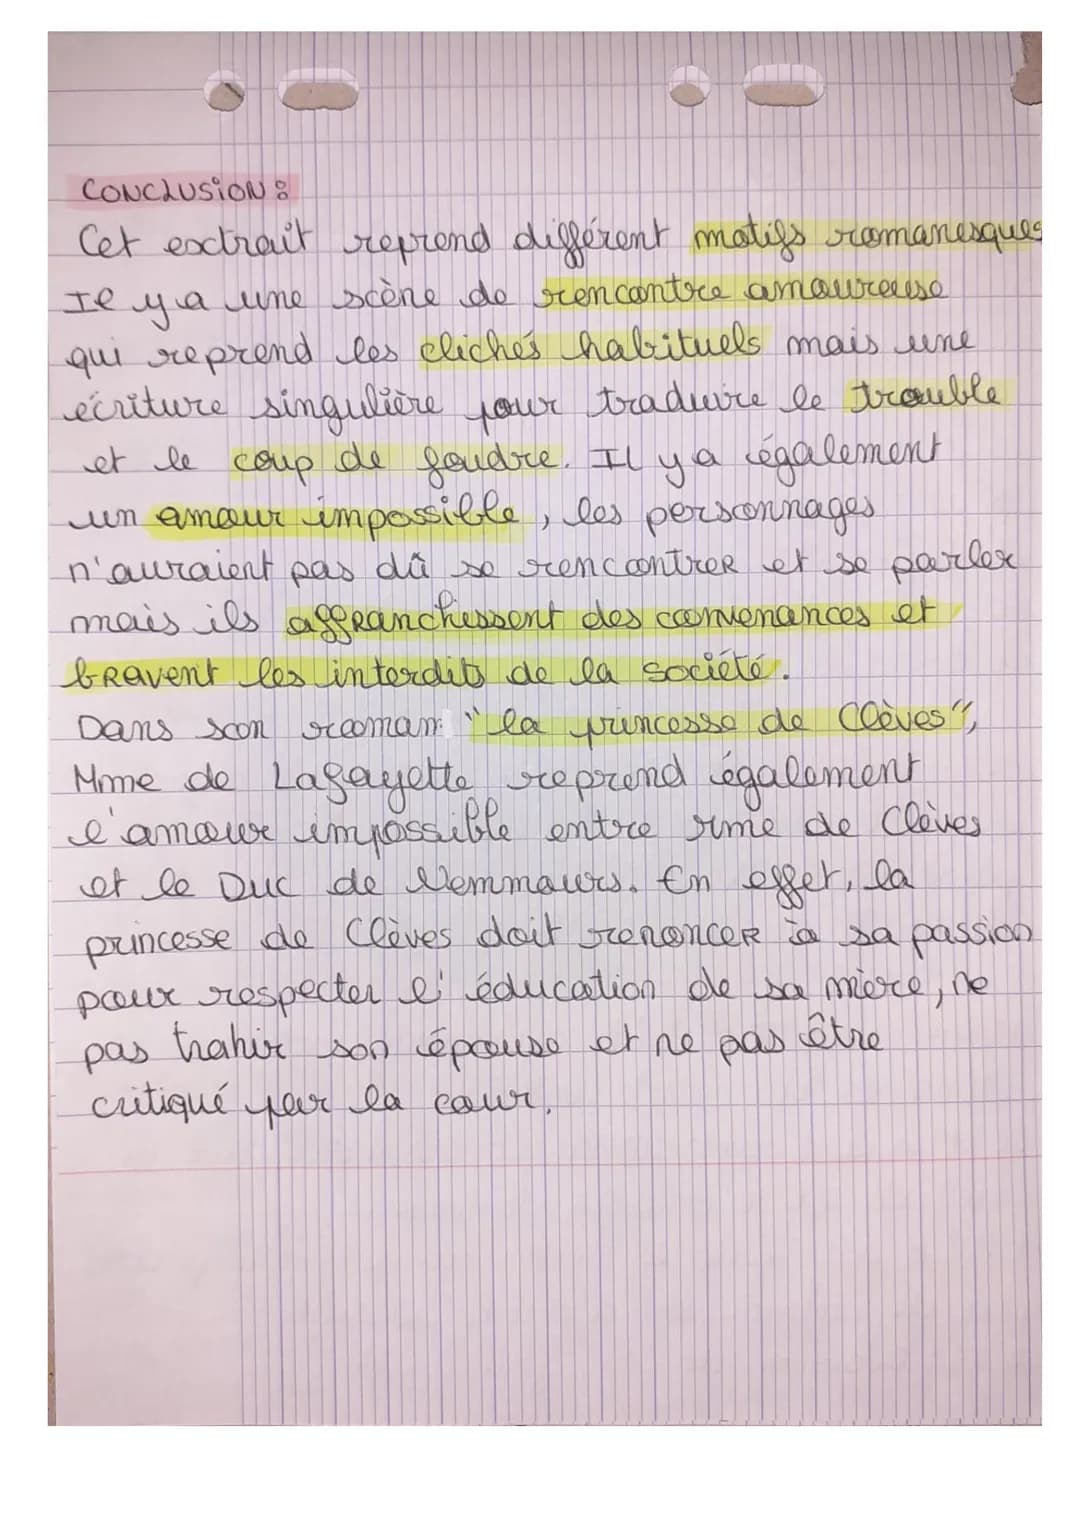 CONCLUSION :
Cet extrait reprend différent motifs romanesques
Il y a une scène de rencontre amoureuse
qui reprend les clichés habituels mais une
écriture singulière pour traduire le trouble
et le coup de foudre. Il y a également
un amour impossible, les personnages
n'auraient pas dû se rencontrer et se parler
mais ils affranchessent des convenances et
bravent les interdits de la société.
Dans son roman "la princesse de Clèves",
Mme de Lafayette reprend également
l'amour impossible entre Mme de Clèves
et le Duc de Nemmours. En effet, la
princesse de Clèves doit renoncer à sa passion
pour respecter l'éducation de sa mère, ne
pas trahir son épouse et ne pas être
critiqué par la cour.